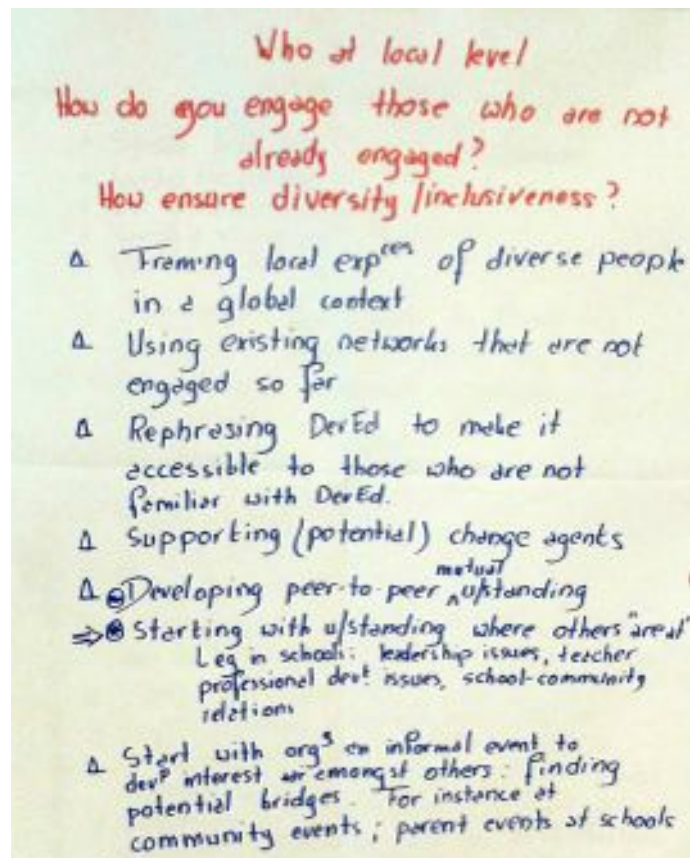 Who at local level
How do you engage those who are not
already engaged?
How ensure diversity/inclusiveness?
Δ Framing local exp^ces of diverse people
in a global context
Δ Using existing networks that are not
engaged so far
Δ Rephrasing DevEd to make it
accessible to those who are not
familiar with DevEd.
Δ Supporting (potential) change agents
mutual
Δ Developing peer-to-peer ^ u/standing
⇒ Starting with u/standing where others "are at"
eg in schools: leadership issues, teacher
professional devt issues, school-community
relations
Δ Start with orgs an informal event to
devp interest amongst others: finding
potential bridges. For instance at
community events; parent events at schools